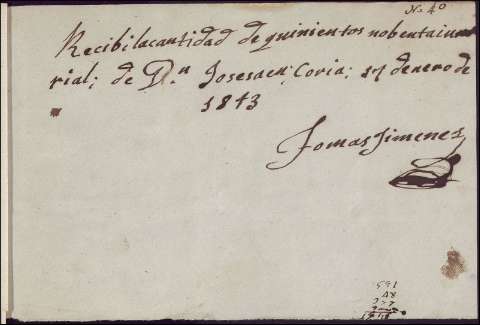 No. 40
Recibi lacantidad de quinientos nobentaiun
rial; de Dn Josesaen; Coria; 17 denero de
1843
Tomas Jimenes
591
48